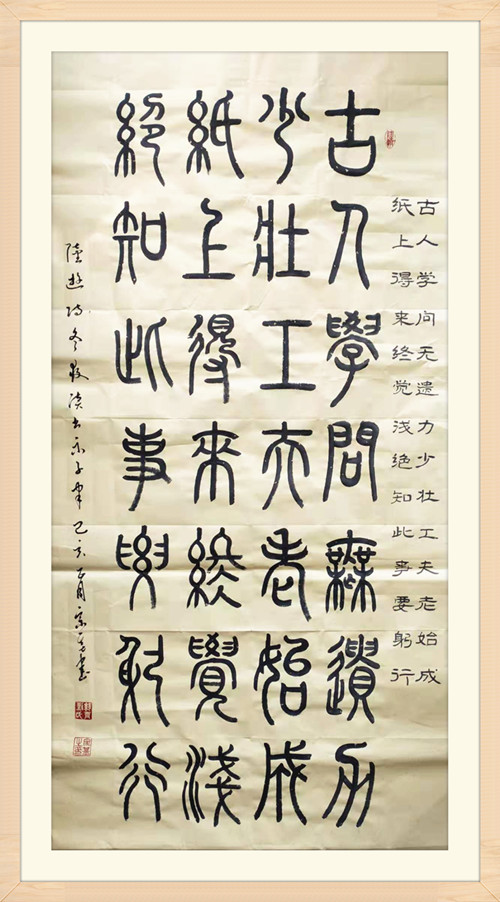 古人学问无遗力少壮工夫老始成
纸上得来终觉浅绝知此事要躬行
古人學問無遺力
少壯工夫老始成
紙上得來終覺淺
絕知此事要躬行
陸遊诗冬夜读书示子聿己亥正月